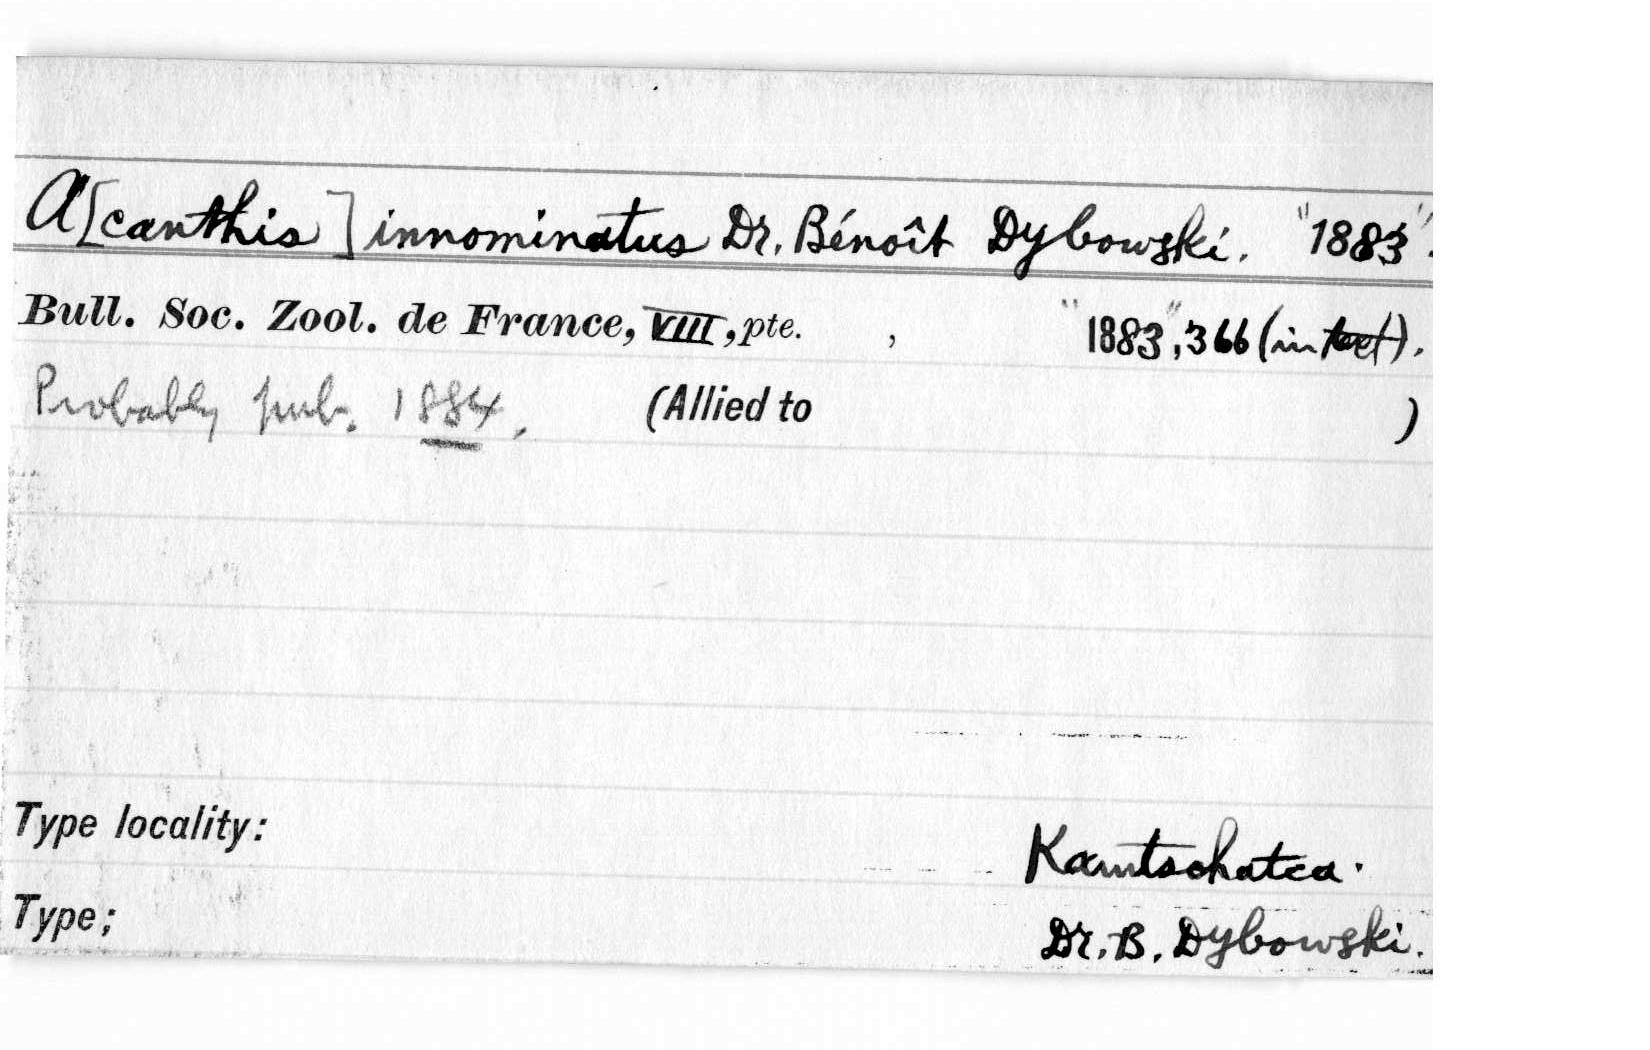 A[canthis] innominatus Dr. Bénoît Dybowski. "1883".
Bull. Soc. Zool. de France, VIII, pte. , "1883", 366 (in text).
Probably pub. 1884. (Allied to )
Type locality: Kamtschatca.
Type; Dr. B. Dybowski.